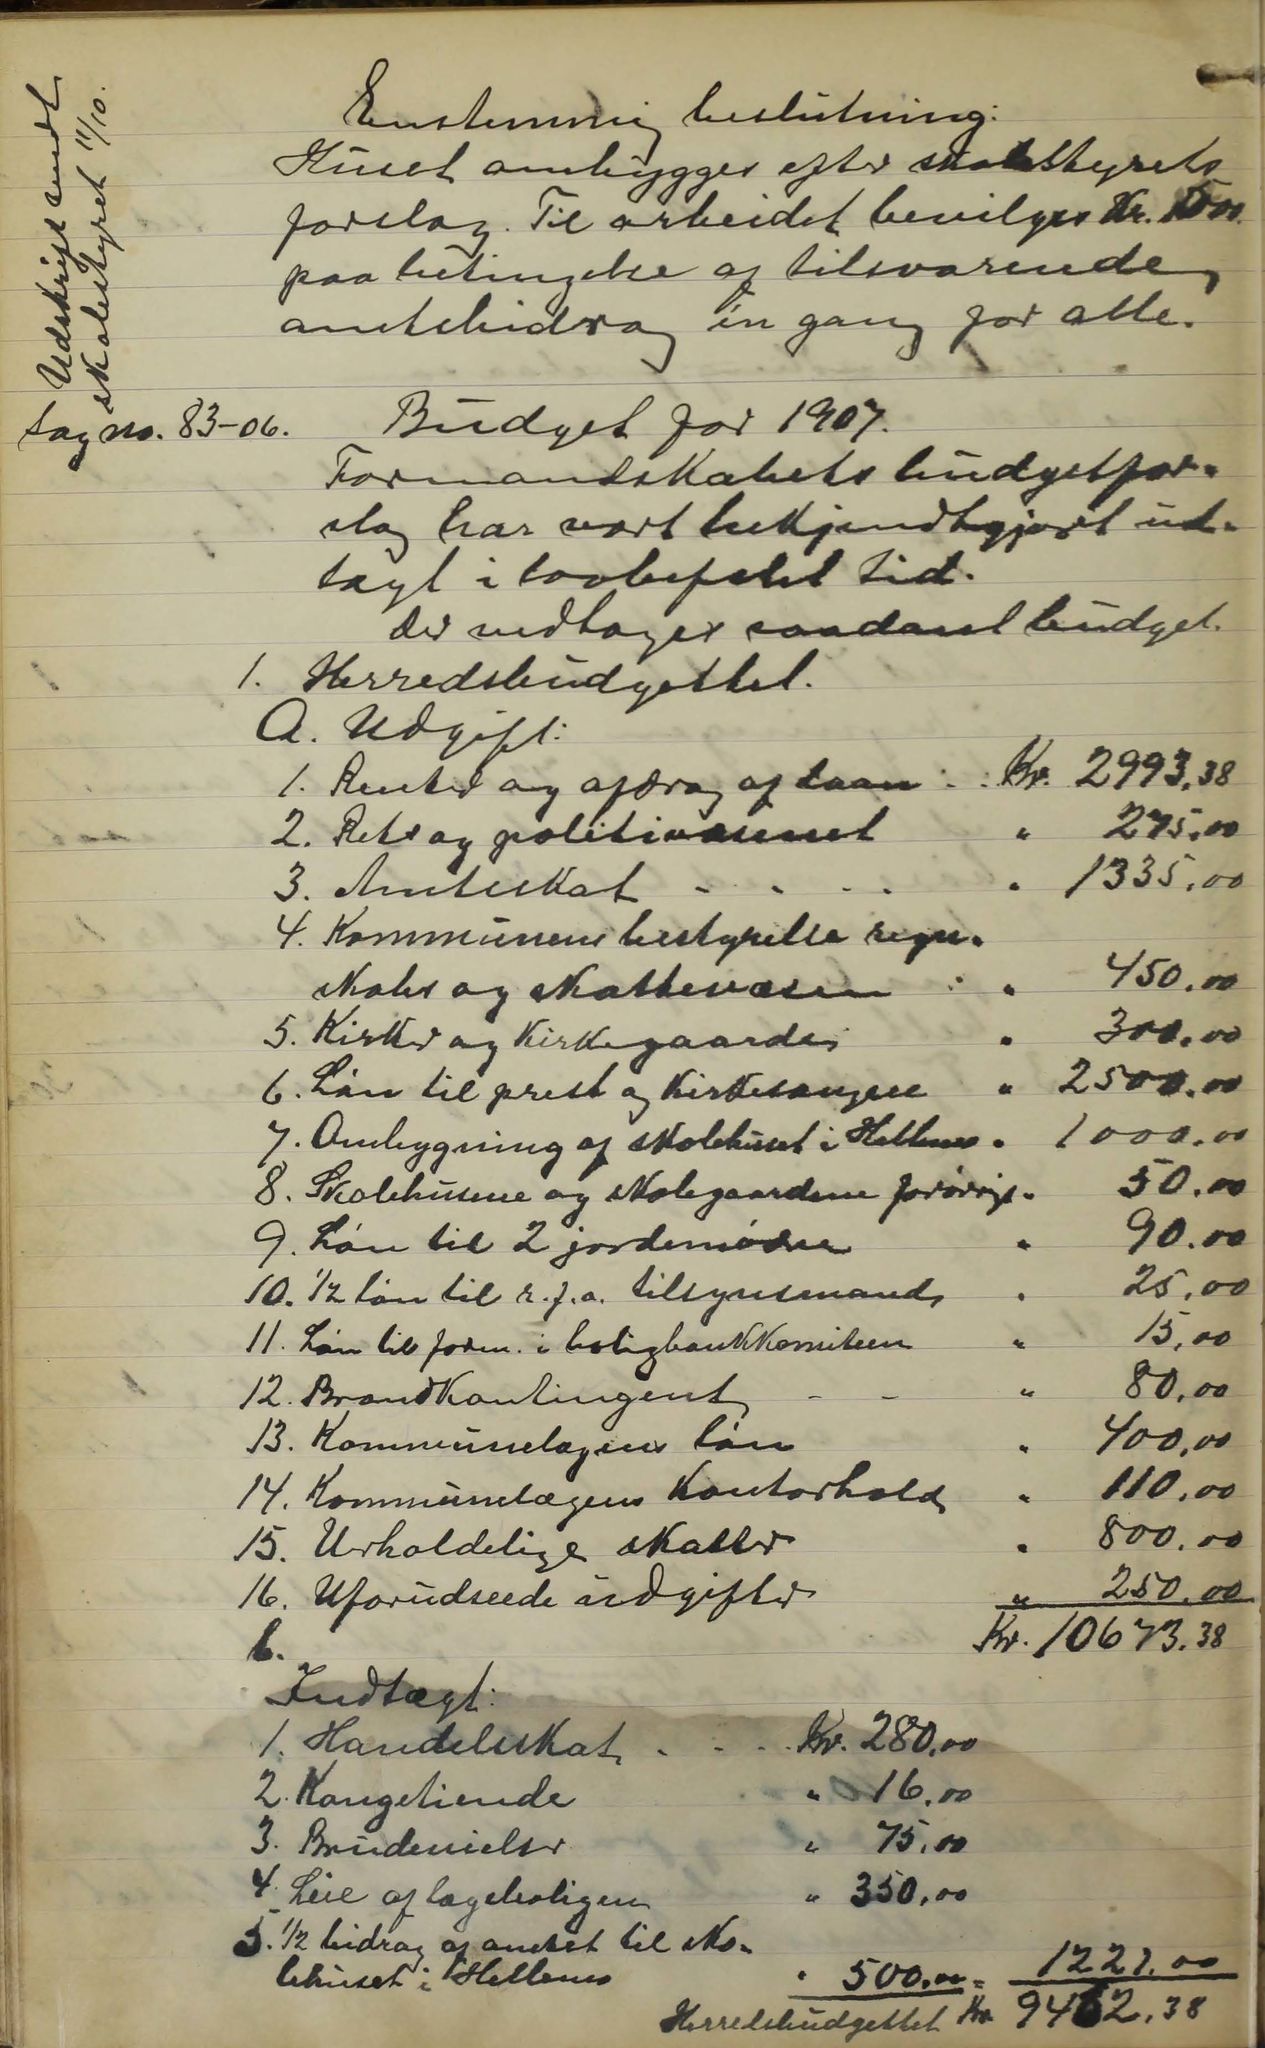 Udskrift sendt
skolestyret 11/10.
Enstemmig beslutning:
Huset ombygges efter skolestyrets
forslag. Til arbeidet bevilges Kr.
paa betingelse af tilsvarende
amtsbidrag én gang for alle.
Sag no. 83-06. Budget for 1907.
Formandskabets budgetfor-
slag har vært bekjendtgjort ud-
lagt i lovbefalet tid.
Der vedtages saadant budget.
1. Herredsbudgettet.
A. Udgift:
1. Renter og afdrag af laan Kr. 2993,38
2. Rets og politivæsenet " 275,00
3. Amtsskat " 1335,00
4. Kommunens bestyrelse regn-
skabs og skattevæsen " 450,00
5. Kirker og kirkegaarde " 300,00
6. Løn til prest og kirkesangere " 2500,00
7. Ombygning af skolehuset i Hellemo " 1000,00
8. Skolehusene og skolegaardene forøvrigt " 50,00
9. Løn til 2 jordemødre " 90,00
10. 1/2 løn til r.f.a. tilsynsmand " 25,00
11. Løn til form. i boligbankkomiteen " 15,00
12. Brandkontingent " 80,00
13. Kommunelægens løn " 400,00
14. Kommunelægens kontorhold " 110,00
15. Uerholdelige skatter " 800,00
16. Uforudseede udgifter " 250,00
Kr. 10673,38
b.
Indtægt:
1. Handelsskat Kr. 280,00
2. Kongetiende " 16,00
3. Brudevielser " 75,00
4. Leie af lægeboligen " 350,00
5. 1/2 bidrag af amtet til sko-
lehuset i Hellemo " 500,00 = 1221,00
Herredsbudgettet Kr. 9452,38